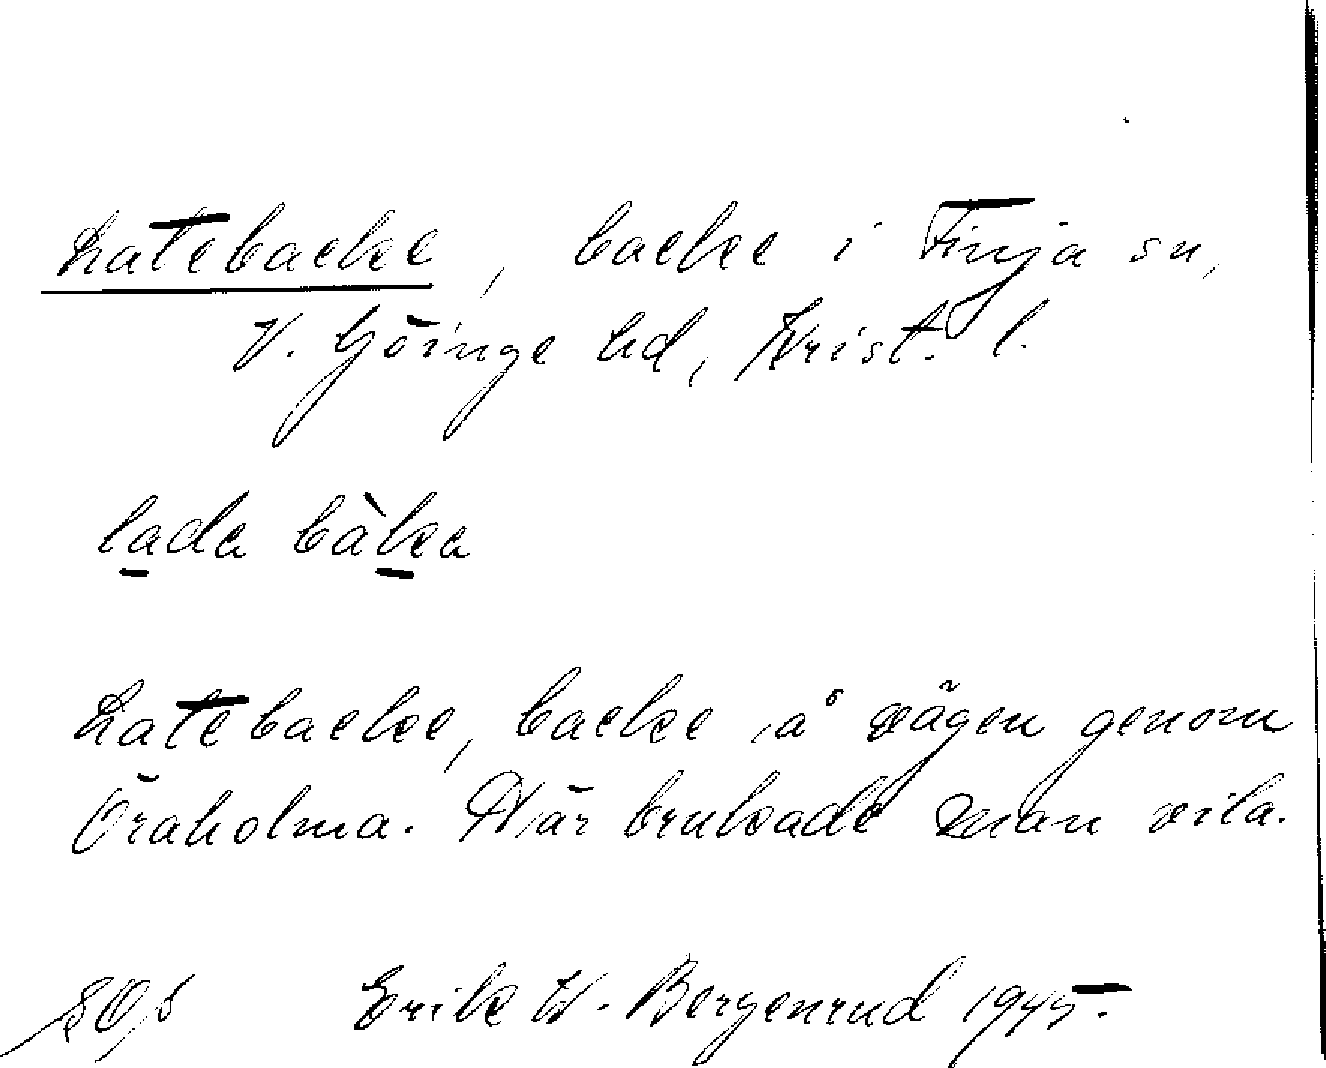 Latebacke, backe i Finja sn,
V. Göinge hd, Krist. l.
lada bàka
Latebacke, backe å vägen genom
Öraholma. Här brukade man vila.
Erik W. Bergenrud 1945.